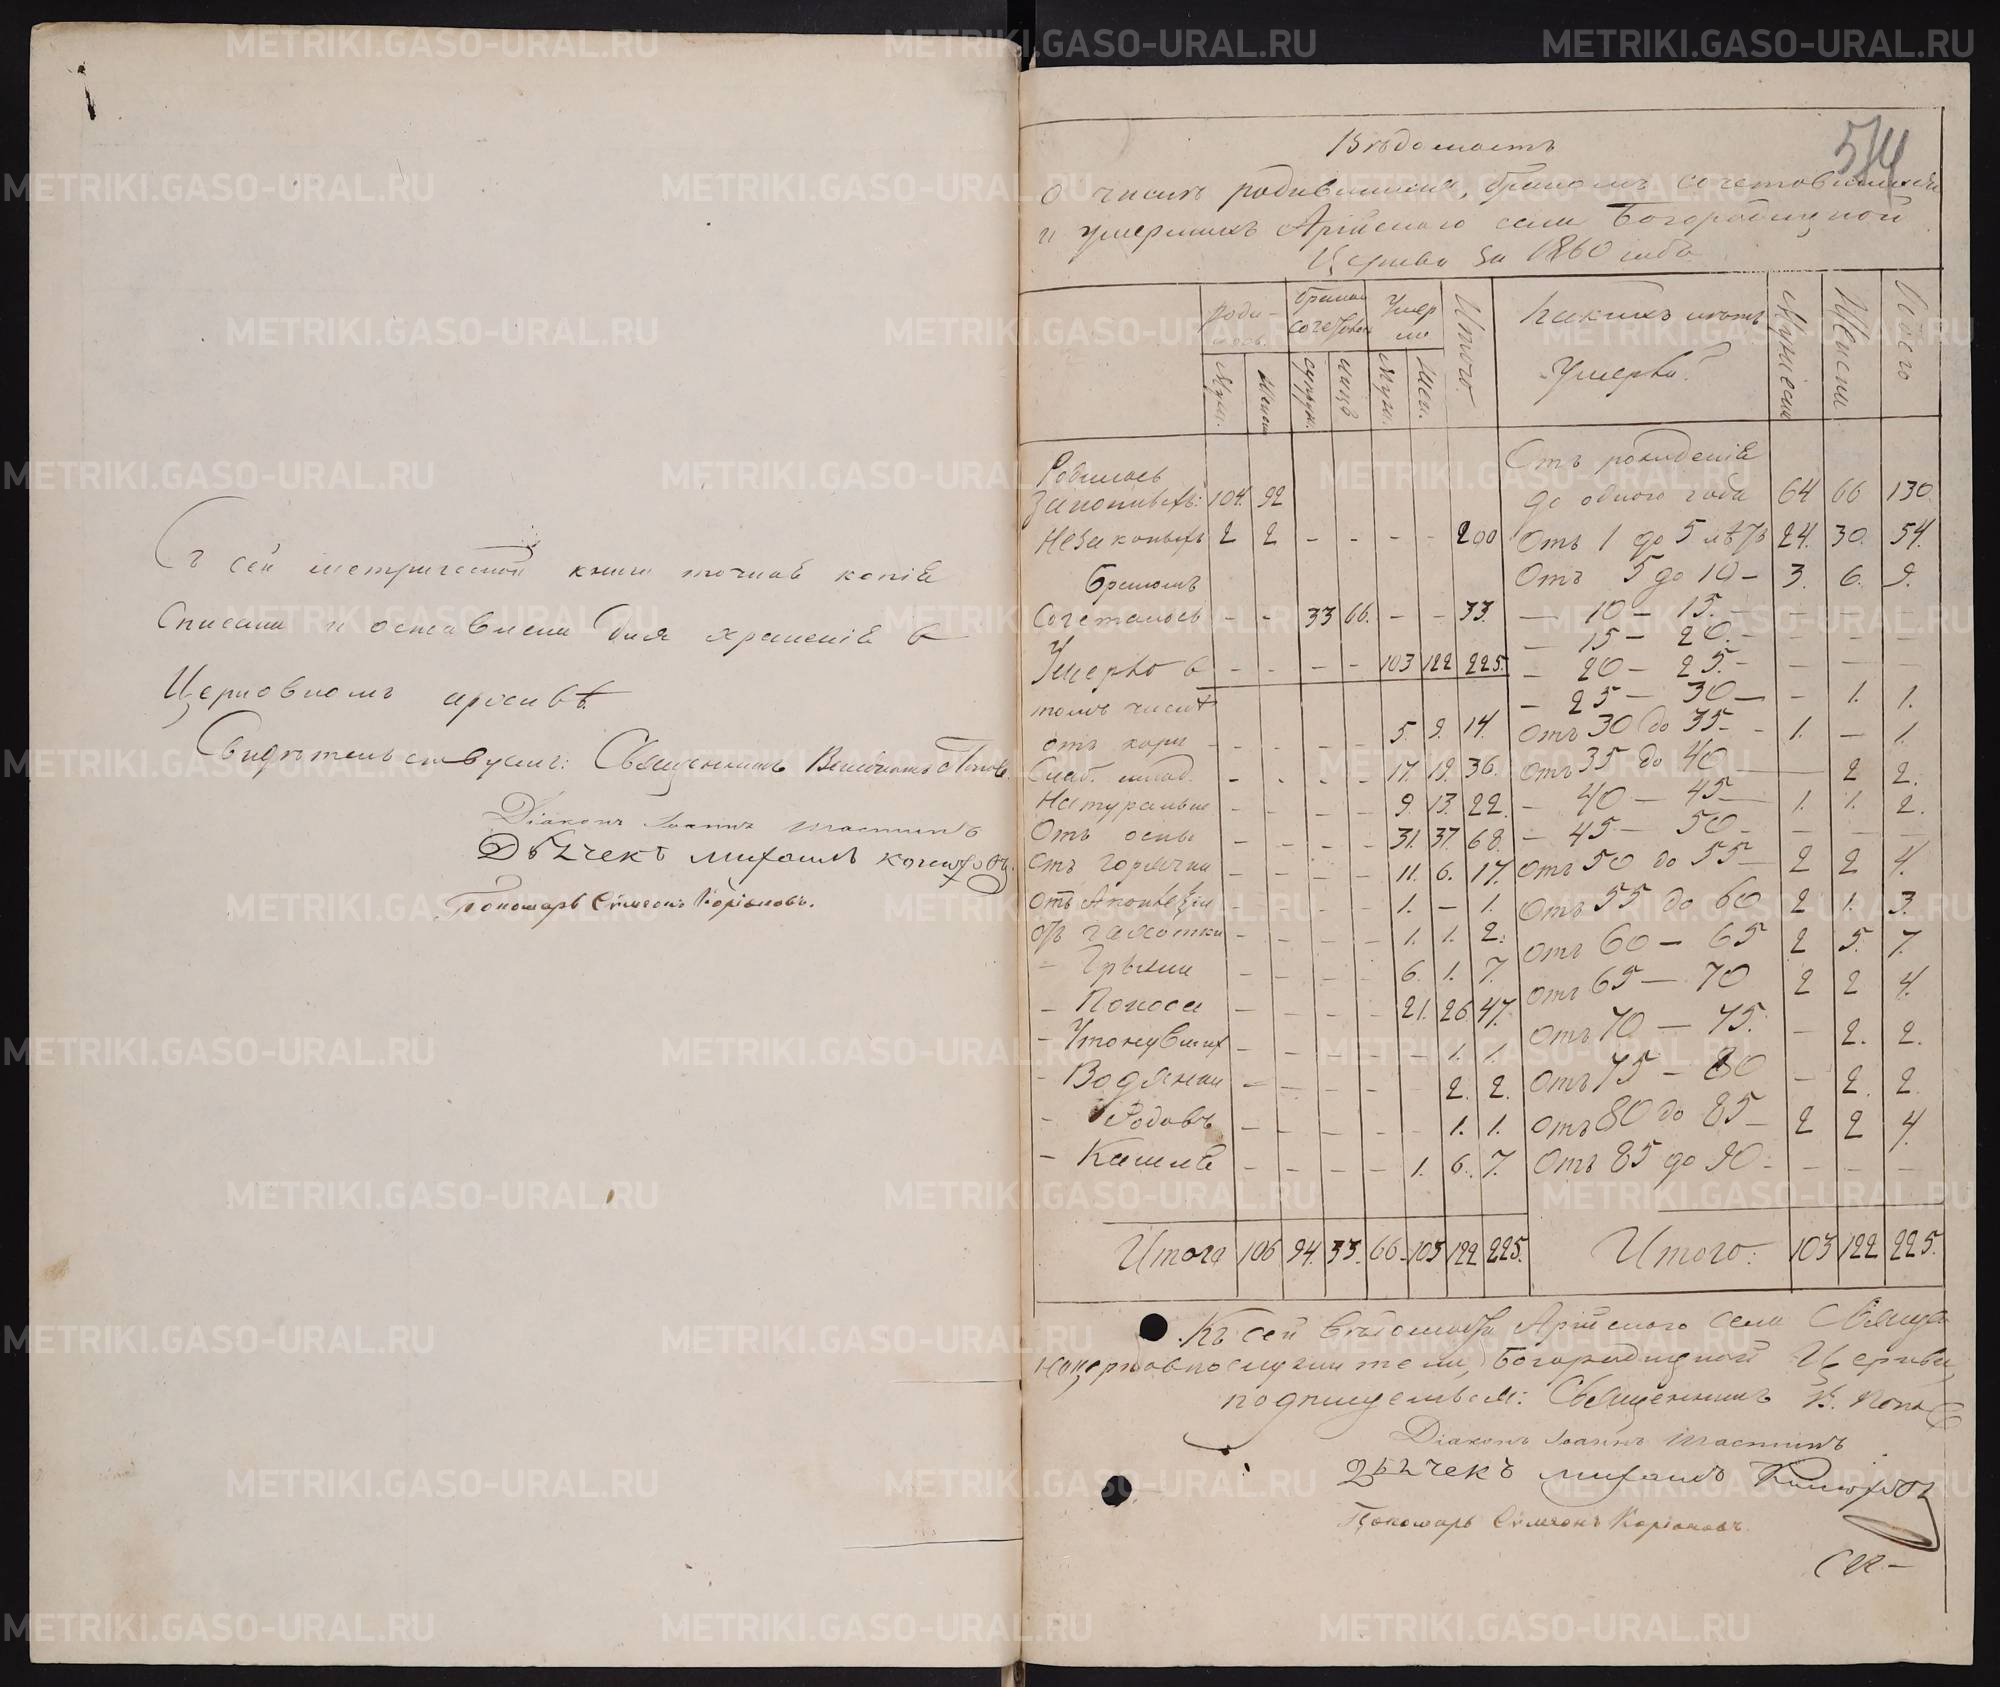 Съ сей метрической книги точная копія
списана и оставлена для храненія в
Церковномъ архивѣ.
Свидѣтельствуемъ: Священникъ Поповъ.
Діаконъ Іоаннъ
Дьячекъ Михаилъ
Пономарь Симеонъ Коріоновъ.
Вѣдомость
о числѣ родившихся, бракомъ сочетовшихся
и умершихъ Арійскаго села Богородицкой
Церкви за 1860 годъ
Роди-
лось.
Браком
сочетовал
Умер
ше
Итого.
Муж.
Женск
супруж.
лицъ
Муж.
Жен.
Какихъ лѣтъ
умерли?
Мужеска
Женска
Итого
Родилось
законныхъ: 104. 92
Незаконыхъ 2 2 - - - - 200
Бракомъ
Сочеталось - - 33 66. - - 33.
Умерло в - - - - 103 122 225.
томъ числѣ
отъ кори - - - - 5. 9. 14.
Слаб. млад. - - - - 17. 19. 36.
Натуральн - - - - 9. 13. 22.
Отъ оспы - - - - 31. 37. 68.
отъ горячки - - - - 11. 6. 17.
отъ Апоплексіи - - - - 1. - 1.
отъ чахотки - - - - 1. 1. 2.
- Грыжи - - - - 6. 1. 7.
- Поноса - - - - 21. 26. 47.
- Утонувших - - - - - 1. 1.
- Водянки - - - - - 2. 2.
- Родовъ - - - - - 1. 1.
- Кашля - - - - 1. 6. 7.
Итого 106 94. 33. 66 103 122 225.
Отъ рожденія
до одного года 64 66 130
Отъ 1 до 5 лѣтъ 24. 30. 54.
Отъ 5 до 10 - 3. 6. 9.
- 10 - 15. - - - -
- 15 - 20. - - - -
- 20 - 25. - - - -
- 25 - 30 - - 1. 1.
Отъ 30 до 35 - 1. - 1.
Отъ 35 до 40 - - 2 2.
- 40 - 45 - 1. 1. 2.
- 45 - 50 - - - -
Отъ 50 до 55 - 2 2 4.
Отъ 55 до 60 2 1. 3.
Отъ 60 - 65 2 5. 7.
Отъ 65 - 70 2 2 4.
Отъ 70 - 75. - 2. 2.
Отъ 75 - 80 - 2. 2.
Отъ 80 до 85 - 2 2 4.
Отъ 85 до 90 - - - -
Итого: 103 122 225.
Къ сей вѣдомости Арійскаго села Свяще
ноцерковнослужители, Богородицкой Церкви,
подписуемъся: Священникъ В. Попов
Діаконъ Іоаннъ
Дьячекъ Михаилъ
Пономарь Симеонъ Коріоновъ.
METRIKI.GASO-URAL.RU